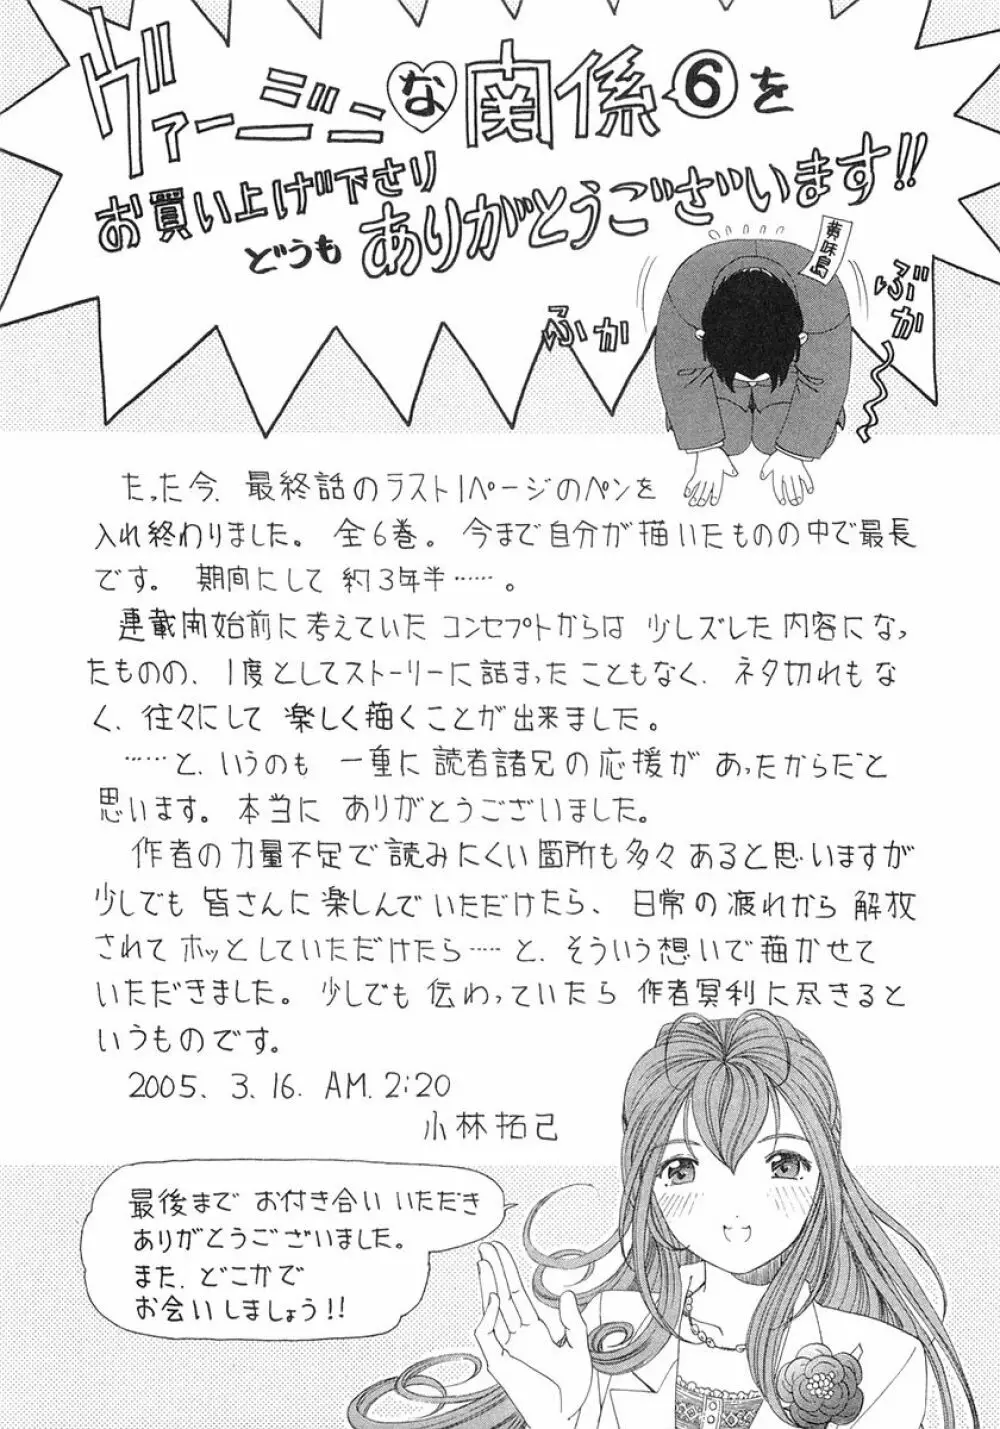 ヴァージンな関係⑥を
お買い上げ下さり
どうもありがとうございます!!
黄味島
ぶか
ぶか
たった今、最終話のラスト1ページのペンを
入れ終わりました。全6巻。今まで自分が描いたものの中で最長
です。期間にして約3年半……。
連載開始前に考えていたコンセプトからは少しズレした内容になっ
たものの、1度としてストーリーに詰まったこともなく、ネタ切れもな
く、往々にして楽しく描くことが出来ました。
……と、いうのも一重に読者諸兄の応援があったからだと
思います。本当にありがとうございました。
作者の力量不足で読みにくい箇所も多々あると思いますが
少しでも皆さんに楽しんでいただけたら、日常の疲れから解放
されてホッとしていただけたら……と、そういう想いで描かせて
いただきました。少しでも伝わっていたら作者冥利に尽きると
いうものです。
2005.3.16.AM.2:20
小林拓己
最後までお付き合いいただき
ありがとうございました。
また、どこかで
お会いしましょう!!